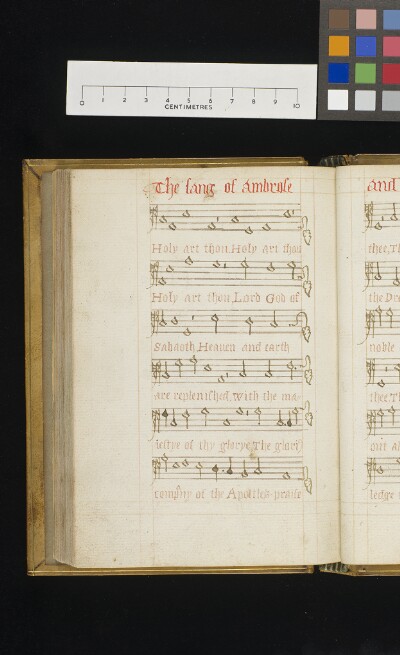 0 1 2 3 4 5 6 7 8 9 10
CENTIMETRES
The sang of Ambrose
Holy art thou, Holy art thou
Holy art thou, Lord God of
Sabaoth, Heaven and earth
are replenished, with the ma-
iestye of thy glorye, The glori
company of the Apostles praise
and
thee, T
the Pr
noble
thee, T
out al
ledge